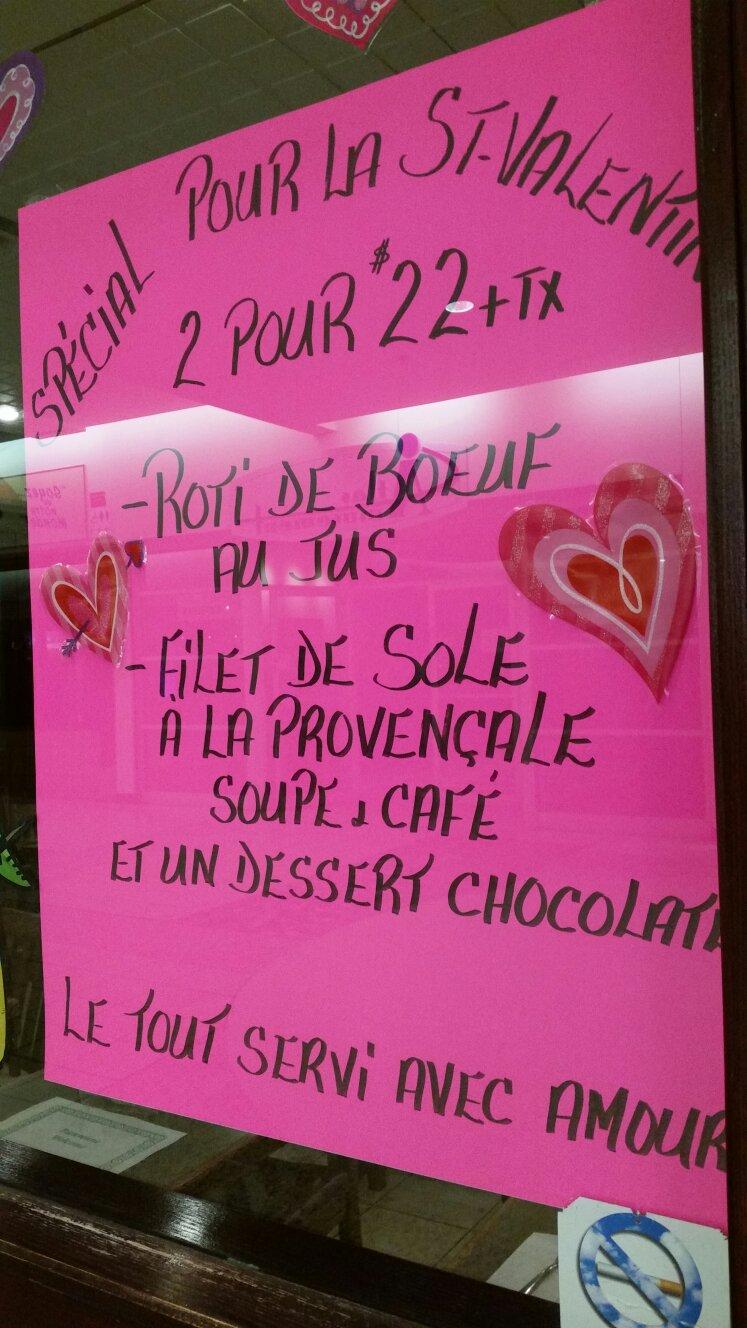 SPÉCIAL POUR LA ST-VALENTIN
2 POUR $22+TX
-ROTI DE BOEUF
AU JUS
-FILET DE SOLE
À LA PROVENÇALE
SOUPE & CAFÉ
ET UN DESSERT CHOCOLATÉ
LE TOUT SERVI AVEC AMOUR